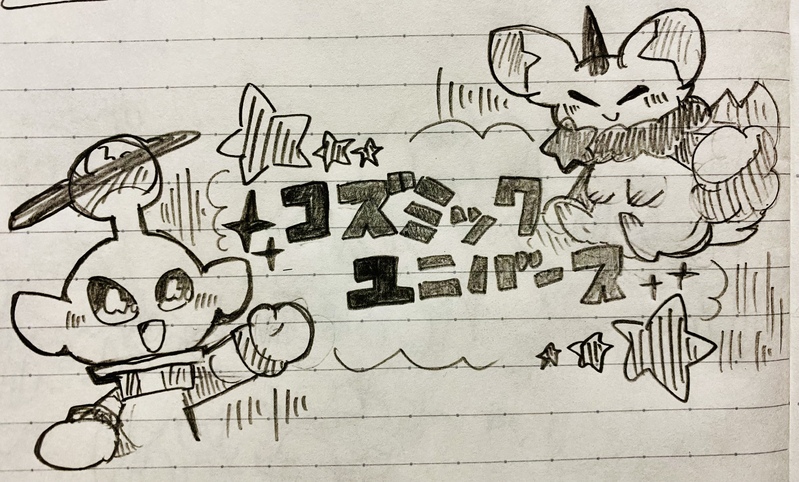 コズミック
ユニバース